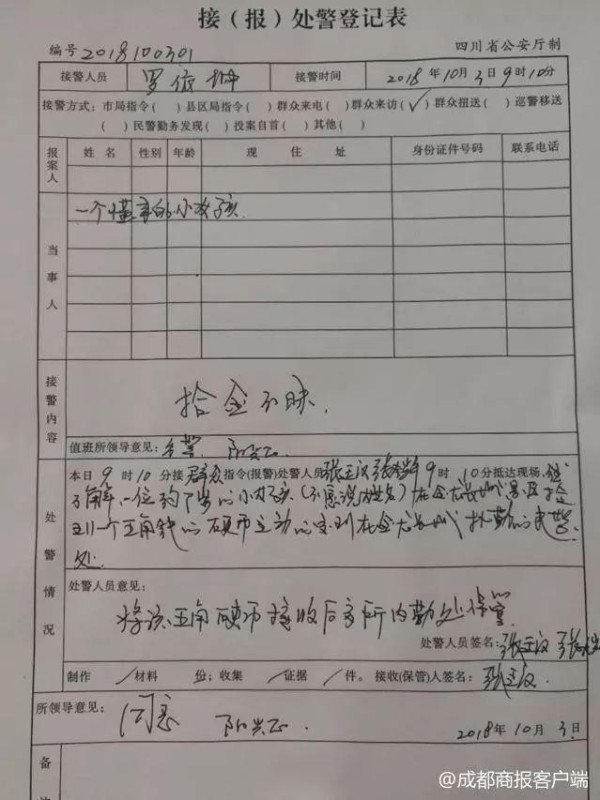 接（报）处警登记表
编号 2018100301 四川省公安厅制
接警人员 罗依 接警时间 2018年10月3日9时10分
接警方式：市局指令( ) 县区局指令( ) 群众来电( ) 群众来访(✓) 群众扭送( ) 巡警移送
( ) 民警勤务发现( ) 投案自首( ) 其他( )
报案人 姓名 性别 年龄 现住址 身份证件号码 联系电话
当事人 一个懂事的小孩
接警内容 拾金不昧.
值班所领导意见：
处警情况
本日9时10分接群众指令(报警)处警人员张 9时10分抵达现场、经
了解一位约7岁的小孩(不愿说姓名)在 拾
到一个五角钱的硬币主动的 到在 执勤的民警
处.
处警人员意见：
将该五角硬币接收后交所内勤处保管
处警人员签名：张 张
制作 / 材料 份；收集 / 证据 / 件。接收(保管)人签名：张
所领导意见： 同意
2018年10月3日
备
@成都商报客户端